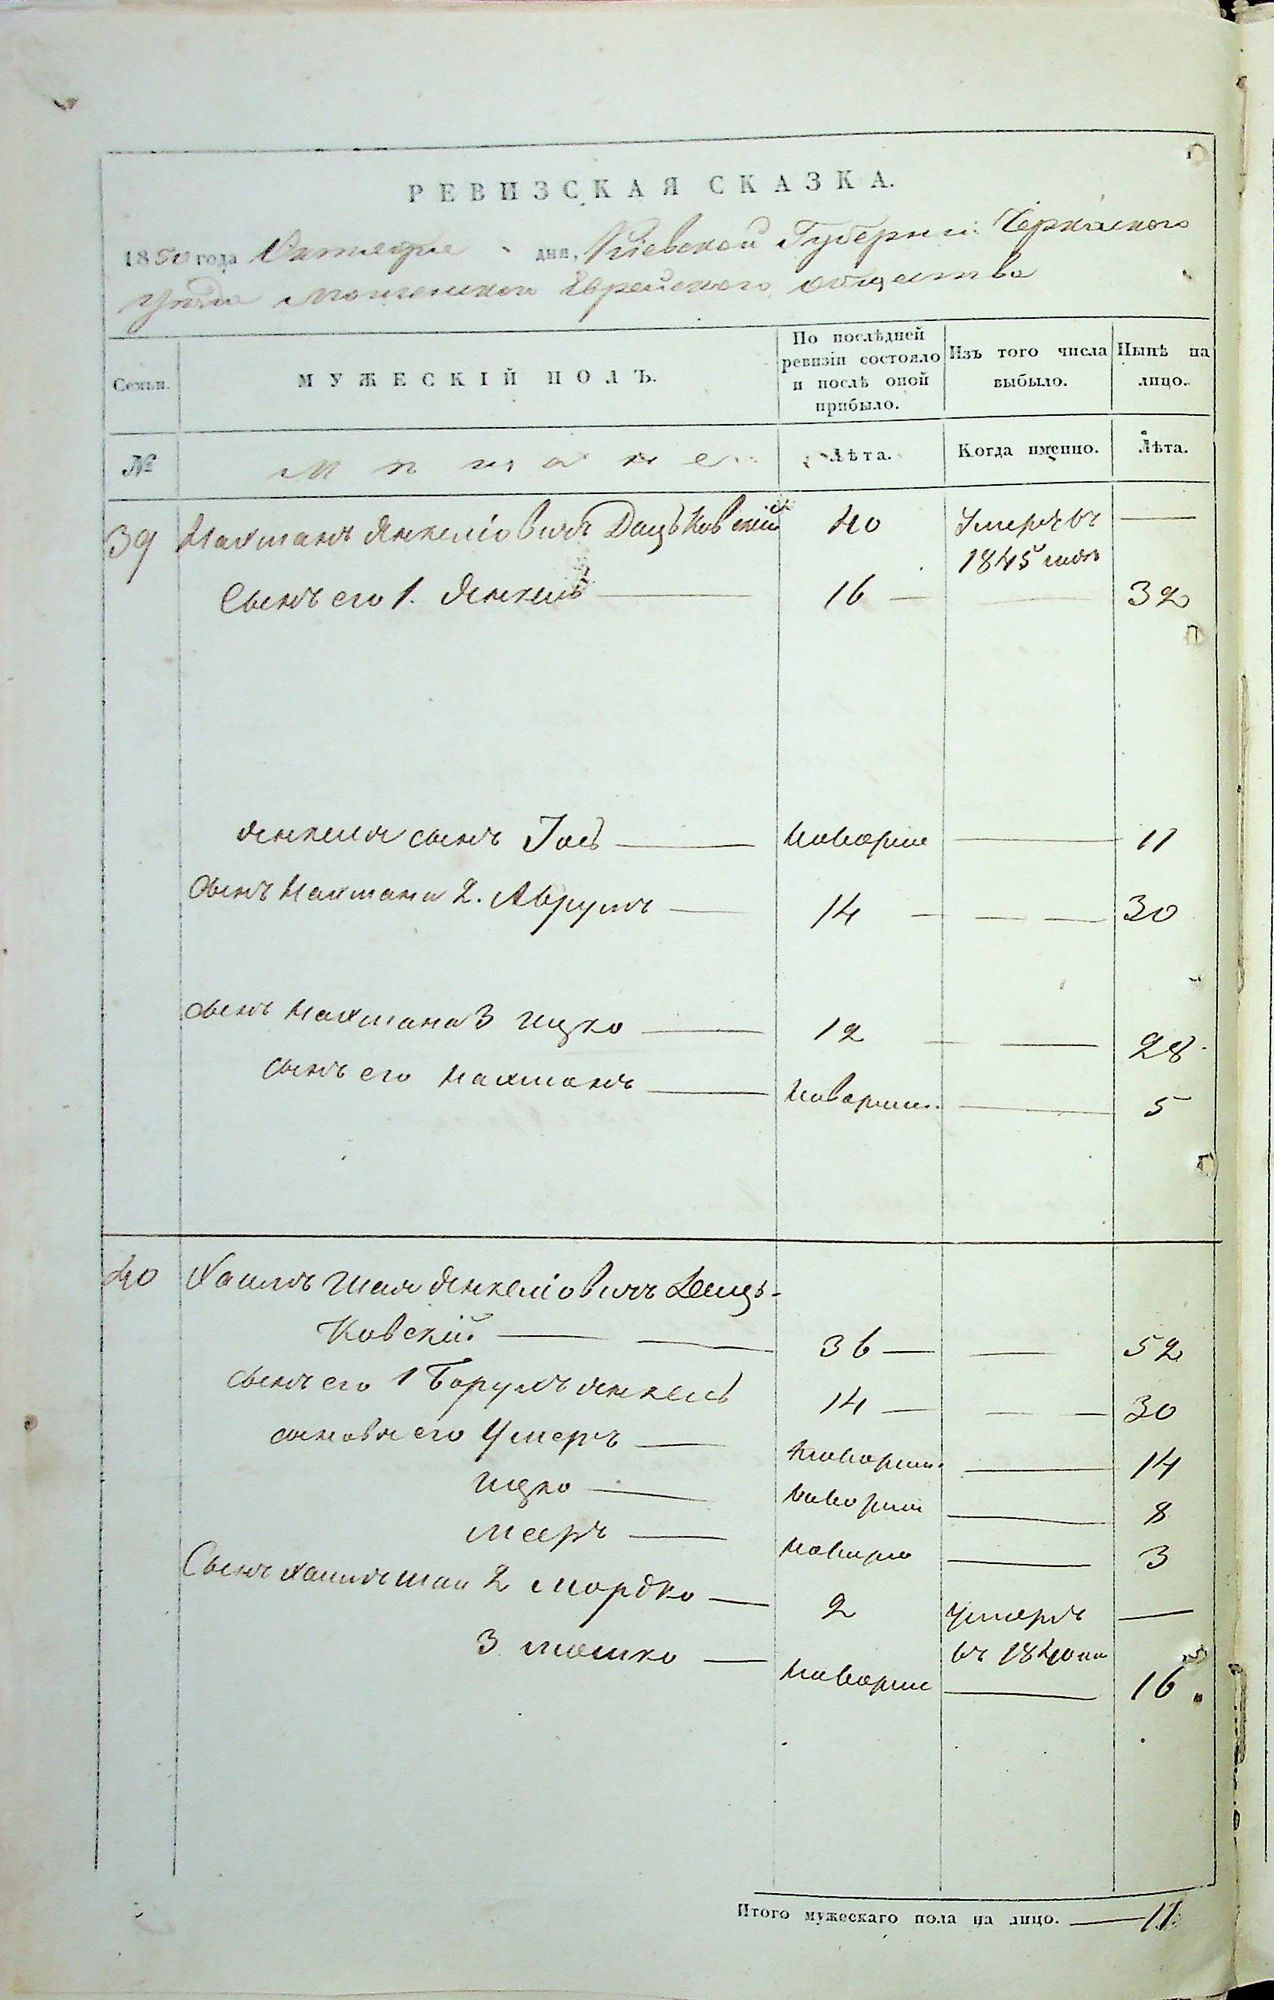 РЕВИЗСКАЯ СКАЗКА.
1850 года Октября дня, Кіевской Губерніи Черкаского
уезда Мошенского Еврейского общества
Семьи.
МУЖЕСКІЙ ПОЛЪ.
По послѣдней
ревизіи состояло
и послѣ оной
прибыло.
Изъ того числа
выбыло.
Нынѣ на
лицо.
№
Мѣщане
Лѣта.
Когда именно.
Лѣта.
39 Нахманъ Янкеліовичъ Дацьковскій 40 Умеръ въ —
1845 годѣ
Сынъ его 1. Янкель — 16 — 32
Янкеля сынъ Іось — новорж — 11
Сынъ Нахмана 2. Аврумъ — 14 — — — 30
Сынъ Нахмана 3 Ицко — 12 — — 28
Сынъ его Нахманъ — новорж. — 5
40 Хаимъ Шая Янкеліовичъ Дацъ-
ковскій — — 36 — — 52
Сынъ его 1 Борухъ Янкель 14 — — — 30
сыновья его Умеръ — новорж. — 14
Ицко — новорж — 8
Мееръ — новорж — 3
Сынъ Хаима Шаи 2 Мордко — 2 умеръ —
въ 1840
3 Мошко — новорж — 16
Итого мужескаго пола на лицо. — 11